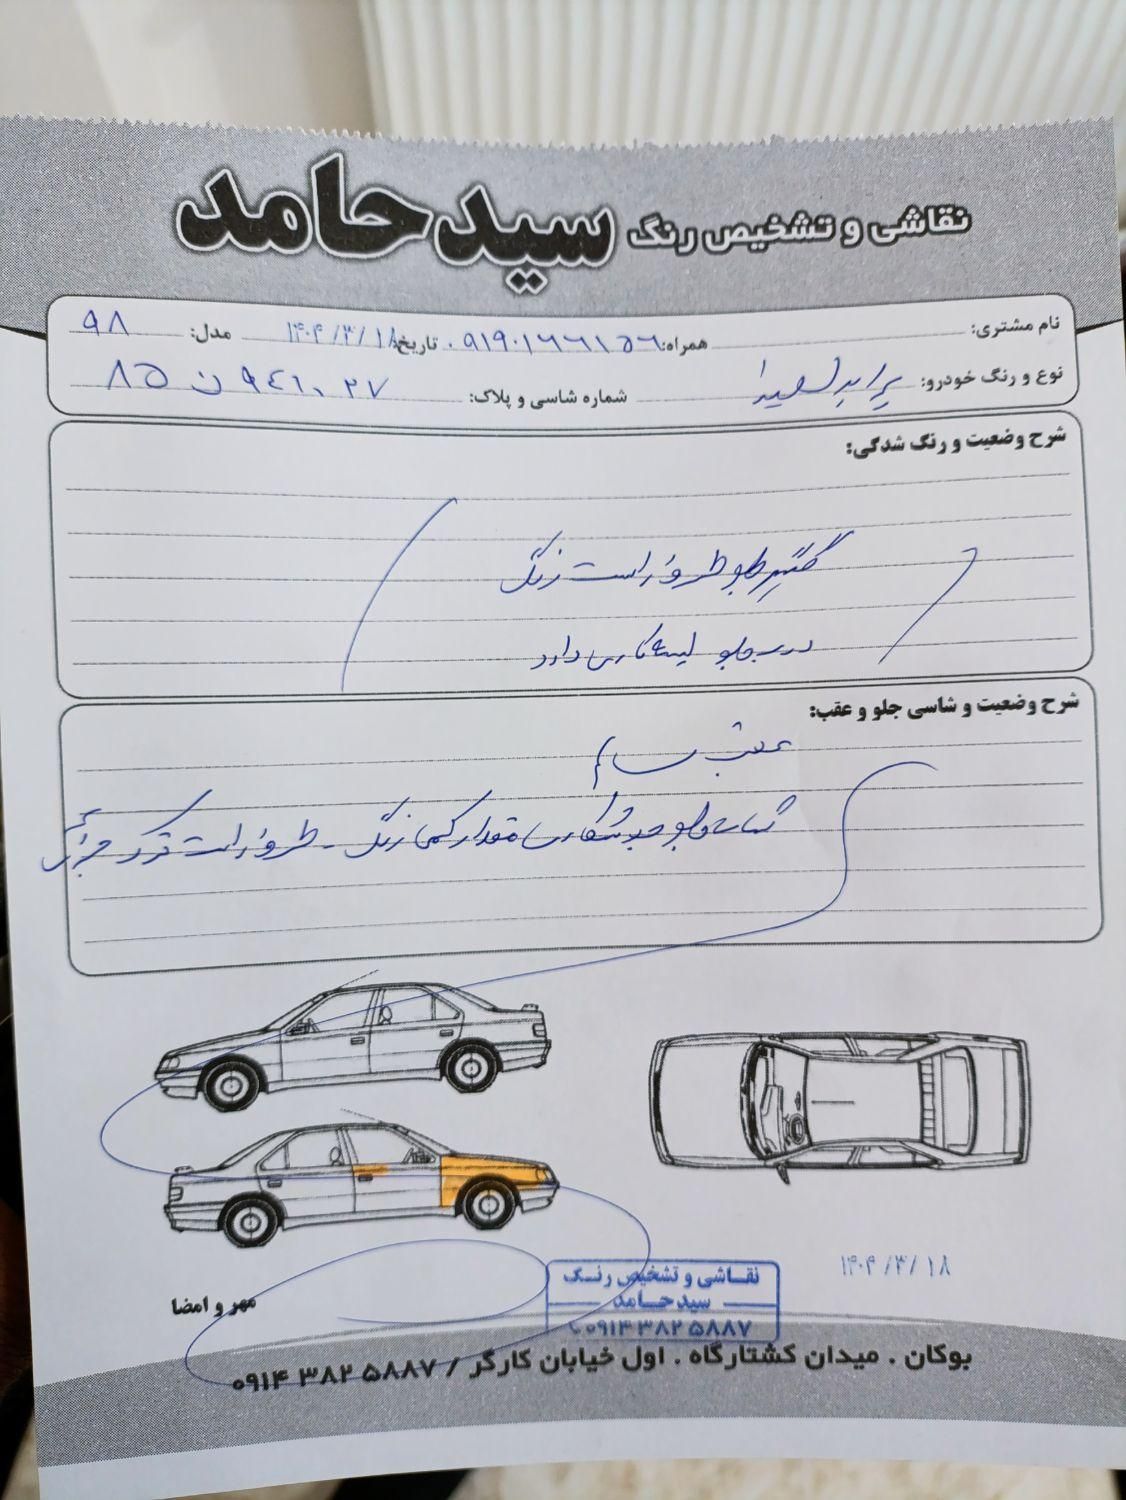 نقاشی و تشخیص رنگ سید حامد
نام مشتری: همراه: ۰۹۱۹۰۱۶۶۱۵۶ تاریخ: ۱۴۰۴/۳/۱۸ مدل: ۹۸
نوع و رنگ خودرو: پراید سفید شماره شاسی و پلاک: ۲۷ ۹۴۶ ن ۸۵
شرح وضعیت و رنگ شدگی:
گلگیر جلو طرف راست رنگ
درب جلو لیسه گیری دارد
شرح وضعیت و شاسی جلو و عقب:
عقب سالم
جلو مقدار کمی رنگ - طرف راست ترک جزئی
۱۴۰۴/۳/۱۸
نقاشی و تشخیص رنگ
سید حامد
۰۹۱۴ ۳۸۲ ۵۸۸۷
مهر و امضا
بوکان . میدان کشتارگاه . اول خیابان کارگر / ۰۹۱۴ ۳۸۲ ۵۸۸۷